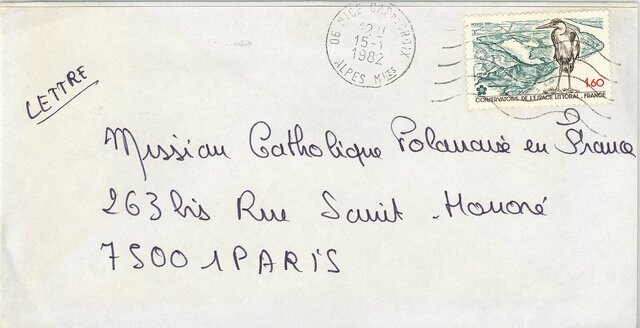 LETTRE
06 NICE
12 H
15-1
1982
ALPES Mmes
1,60
CONSERVATOIRE DE L'ESPACE LITTORAL, FRANCE
Mission Catholique Polonaise en France
263 bis Rue Saint-Honoré
75001 PARIS